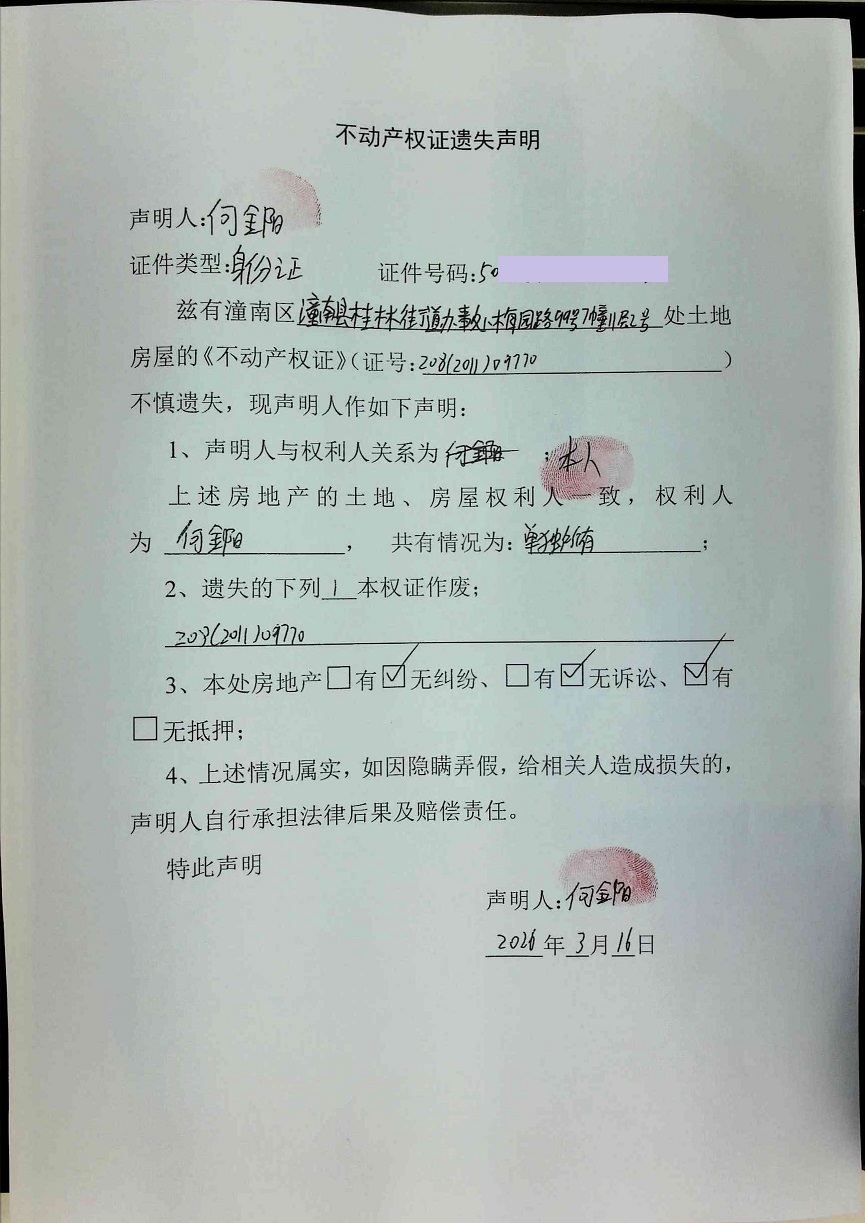 不动产权证遗失声明
声明人:何金阳
证件类型:身份证 证件号码:50
兹有潼南区潼南县桂林街道办事处梅园路99号7幢1层2号处土地
房屋的《不动产权证》(证号:203(2011)09770)
不慎遗失，现声明人作如下声明:
1、声明人与权利人关系为何金阳;本人
上述房地产的土地、房屋权利人一致，权利人
为 何金阳， 共有情况为:单独所有;
2、遗失的下列1本权证作废;
203(2011)09770
3、本处房地产□有☑无纠纷、□有☑无诉讼、☑有
□无抵押;
4、上述情况属实，如因隐瞒弄假，给相关人造成损失的，
声明人自行承担法律后果及赔偿责任。
特此声明
声明人:何金阳
2026年3月16日